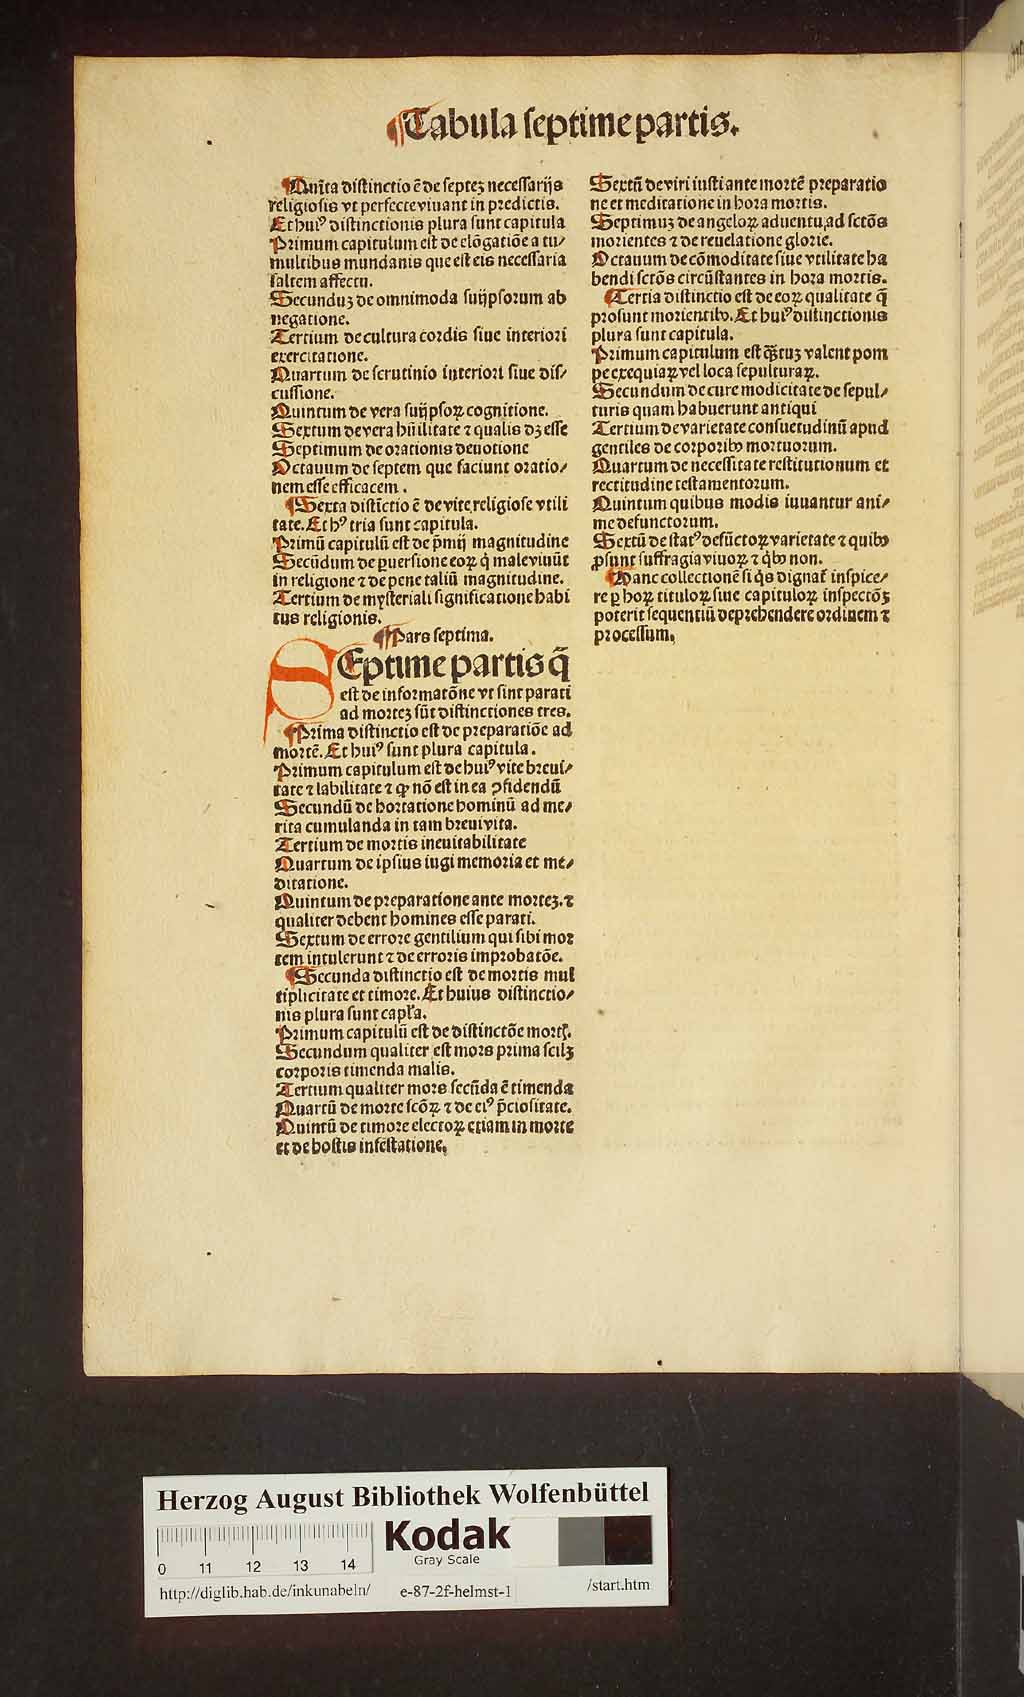 ¶Tabula septime partis.
¶Quīta distinctio ē de septeꝫ necessarijs
religiosis vt perfecte viuant in predictis.
Et huiꝰ distinctionis plura sunt capitula
Primum capitulum est de elōgatiōe a tu⸗
multibus mundanis que est eis necessaria
saltem affectu.
Secunduꝫ de omnimoda suijpsorum ab
negatione.
Tertium de cultura cordis siue interiori
exercitatione.
Quartum de scrutinio interiori siue dis⸗
cussione.
Quintum de vera suijpsoꝝ cognitione.
Sextum de vera hūilitate ⁊ qualis dꝫ esse
Septimum de orationis deuotione
Octauum de septem que faciunt oratio⸗
nem esse efficacem.
¶Sexta distīctio ē de vite religiose vtili
tate. Et hꝰ tria sunt capitula.
Primū capitulū est de p̄mij magnitudine
Secūdum de ꝑuersione eoꝝ q̇ male viuūt
in religione ⁊ de pene taliū magnitudine.
Tertium de mysteriali significatione habi
tus religionis.
¶Pars septima.
SEptime partis q̄
est de informatōne vt sint parati
ad morteꝫ sūt distinctiones tres.
¶Prima distinctio est de preparatiōe ad
mortē. Et huiꝰ sunt plura capitula.
Primum capitulum est de huiꝰ vite breui⸗
tate ⁊ labilitate ⁊ ꝙ nō est in ea ꝯfidendū
Secundū de hortatione hominū ad me⸗
rita cumulanda in tam breui vita.
Tertium de mortis ineuitabilitate
Quartum de ipsius iugi memoria et me⸗
ditatione.
Quintum de preparatione ante morteꝫ. ⁊
qualiter debent homines esse parati.
Sextum de errore gentilium qui sibi mor
tem intulerunt ⁊ de erroris improbatōe.
¶Secunda distinctio est de mortis mul
tiplicitate et timore. Et huius distinctio⸗
nis plura sunt capl'a.
Primum capitulū est de distinctōe mortꝭ.
Secundum qualiter est mors prima scilꝫ
corporis timenda malis.
Tertium qualiter mors secūda ē timenda
Quartū de morte scōꝝ ⁊ de eiꝰ p̄ciositate.
Quintū de timore electoꝝ etiam in morte
et de hostis infestatione.
Sextū de viri iusti ante mortē preparatio
ne et meditatione in hora mortis.
Septimuꝫ de angeloꝝ aduentu, ad sctōs
morientes ⁊ de reuelatione glorie.
Octauum de cōmoditate siue vtilitate ha
bendi sctōs circūstantes in hora mortis.
¶Tertia distinctio est de eoꝝ qualitate q̄
prosunt morientibꝰ. Et huiꝰ distinctionis
plura sunt capitula.
Primum capitulum est q̄ꝫtuꝫ valent pom
pe exequiaꝝ vel loca sepulturaꝝ.
Secundum de cure modicitate de sepul⸗
turis quam habuerunt antiqui
Tertium de varietate consuetudinū apud
gentiles de corporibꝰ mortuorum.
Quartum de necessitate restitutionum et
rectitudine testamentorum.
Quintum quibus modis iuuantur ani⸗
me defunctorum.
Sextū de statꝰ defūctoꝝ varietate ⁊ quibꝰ
ꝓsunt suffragia viuoꝝ ⁊ q̇bꝰ non.
¶Hanc collectionē si q̇s dignat᷑ inspice⸗
re ꝑ hoꝝ tituloꝝ siue capituloꝝ inspectōꝫ
poterit sequentiū deprehendere ordinem ⁊
processum.
Herzog August Bibliothek Wolfenbüttel
Kodak
Gray Scale
0 11 12 13 14
http://diglib.hab.de/inkunabeln/ e-87-2f-helmst-1 /start.htm